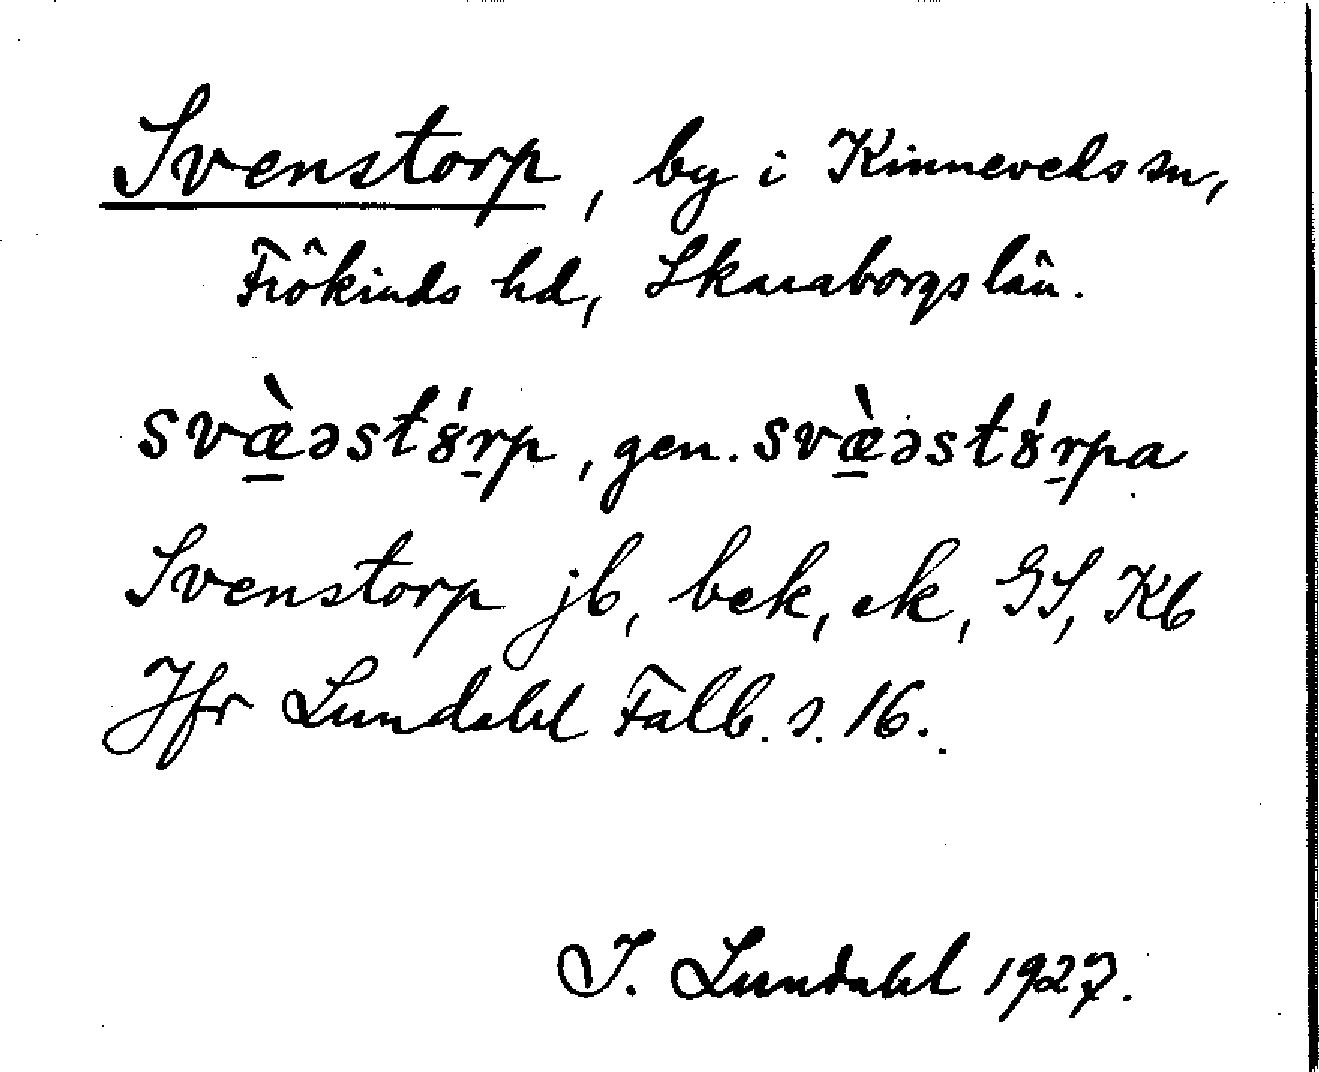 Svenstorp, by i Kinneveds sn,
Frökinds hd, Skaraborgs län.
svæ̠̀əstȣ́r̠p, gen. svæ̠̀əstȣ́r̠pa
Svenstorp jb, bek, ek, GS, Kb
Jfr Lundahl Falb. s. 16.
I. Lundahl 1927.